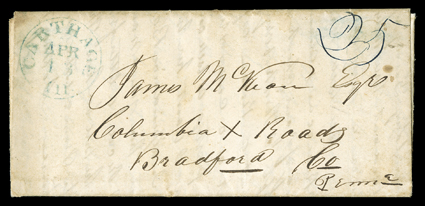 CARTHAGE
APR
Il.
25
James McKean Esqr
Columbia X Roads
Bradford Co
Penna